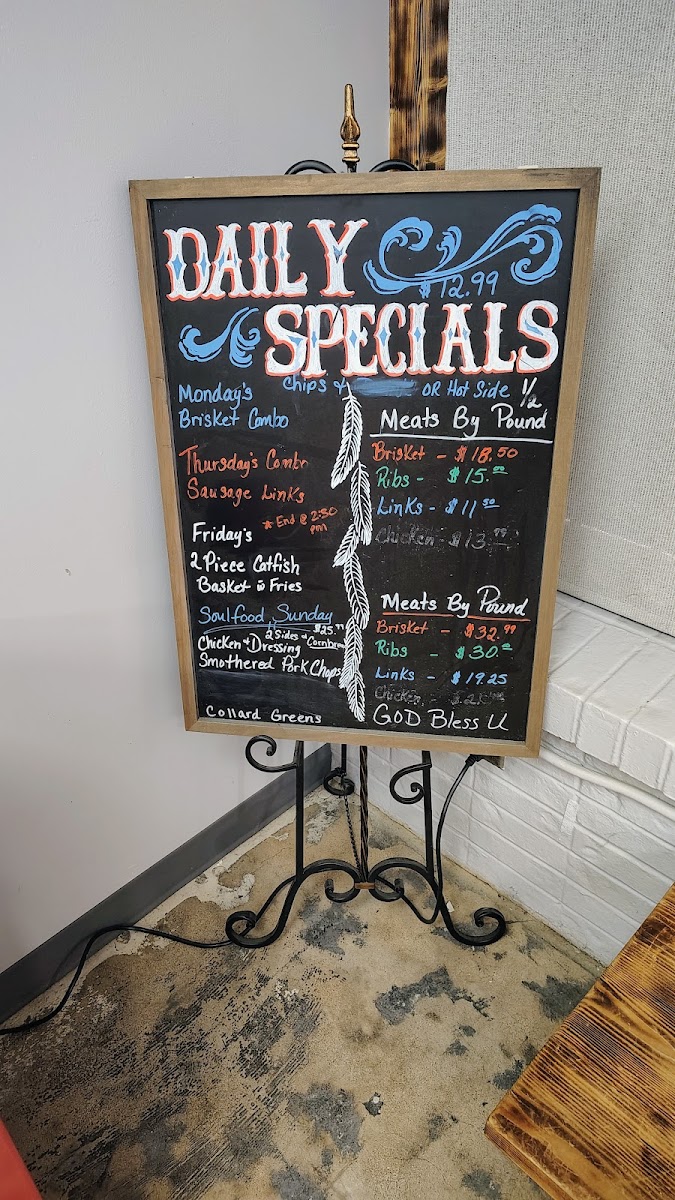 DAILY
$12.99
SPECIALS
Chips & OR Hot Side
Monday's
Brisket Combo
Thursday's Combo
Sausage Links
* End @ 2:30
pm
Friday's
2 Piece Catfish
Basket w Fries
Soulfood Sunday
$25.99
2 Sides & Cornbread
Chicken & Dressing
Smothered Pork Chops
Collard Greens
1/2
Meats By Pound
Brisket - $18.50
Ribs - $15.00
Links - $11.50
Chicken - $13.99
Meats By Pound
Brisket - $32.99
Ribs - $30.00
Links - $19.25
Chicken
GOD Bless U